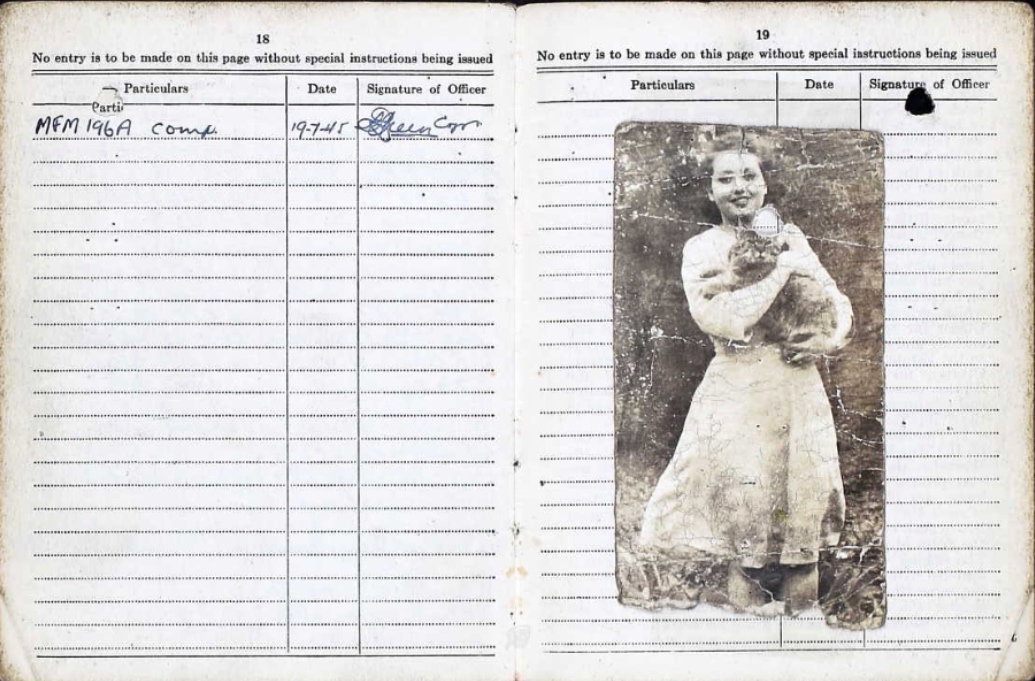 18
No entry is to be made on this page without special instructions being issued
Particulars Date Signature of Officer
Parti
MFM 196A comp. 19-7-45
19
No entry is to be made on this page without special instructions being issued
Particulars Date Signature of Officer